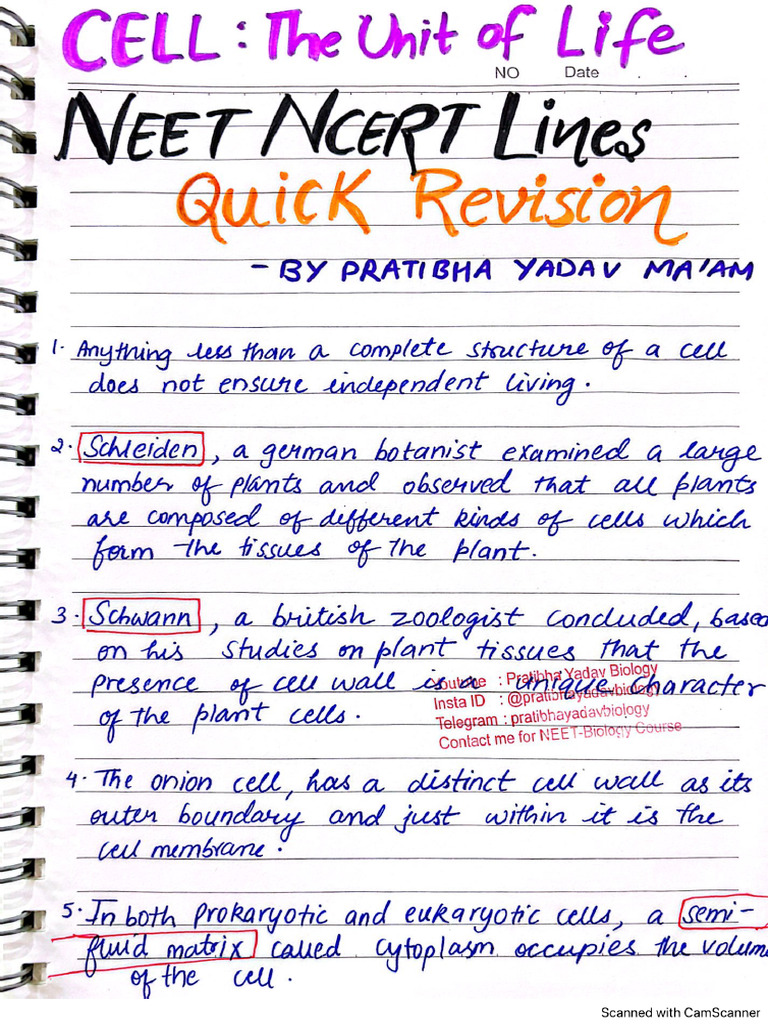 CELL: The Unit of Life
NO Date
NEET NCERT Lines
Quick Revision
- BY PRATIBHA YADAV MA'AM
1. Anything less than a complete structure of a cell
does not ensure independent living.
2. Schleiden, a german botanist examined a large
number of plants and observed that all plants
are composed of different kinds of cells which
form the tissues of the plant.
3. Schwann, a british zoologist concluded, based
on his studies on plant tissues that the
presence of cell wall is a unique character
of the plant cells.
Youtube : Pratibha Yadav Biology
Insta ID : @pratibhayadavbiology
Telegram : pratibhayadavbiology
Contact me for NEET-Biology Course
4. The onion cell, has a distinct cell wall as its
outer boundary and just within it is the
cell membrane.
5. In both prokaryotic and eukaryotic cells, a semi-
fluid matrix called cytoplasm occupies the volume
of the cell.
Scanned with CamScanner